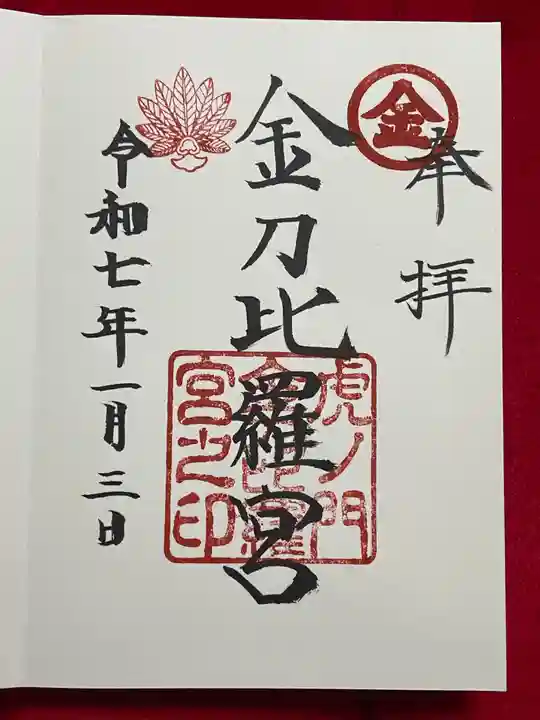 奉拝
金
金刀比羅宮
虎ノ門
金刀比羅
宮之印
令和七年一月三日